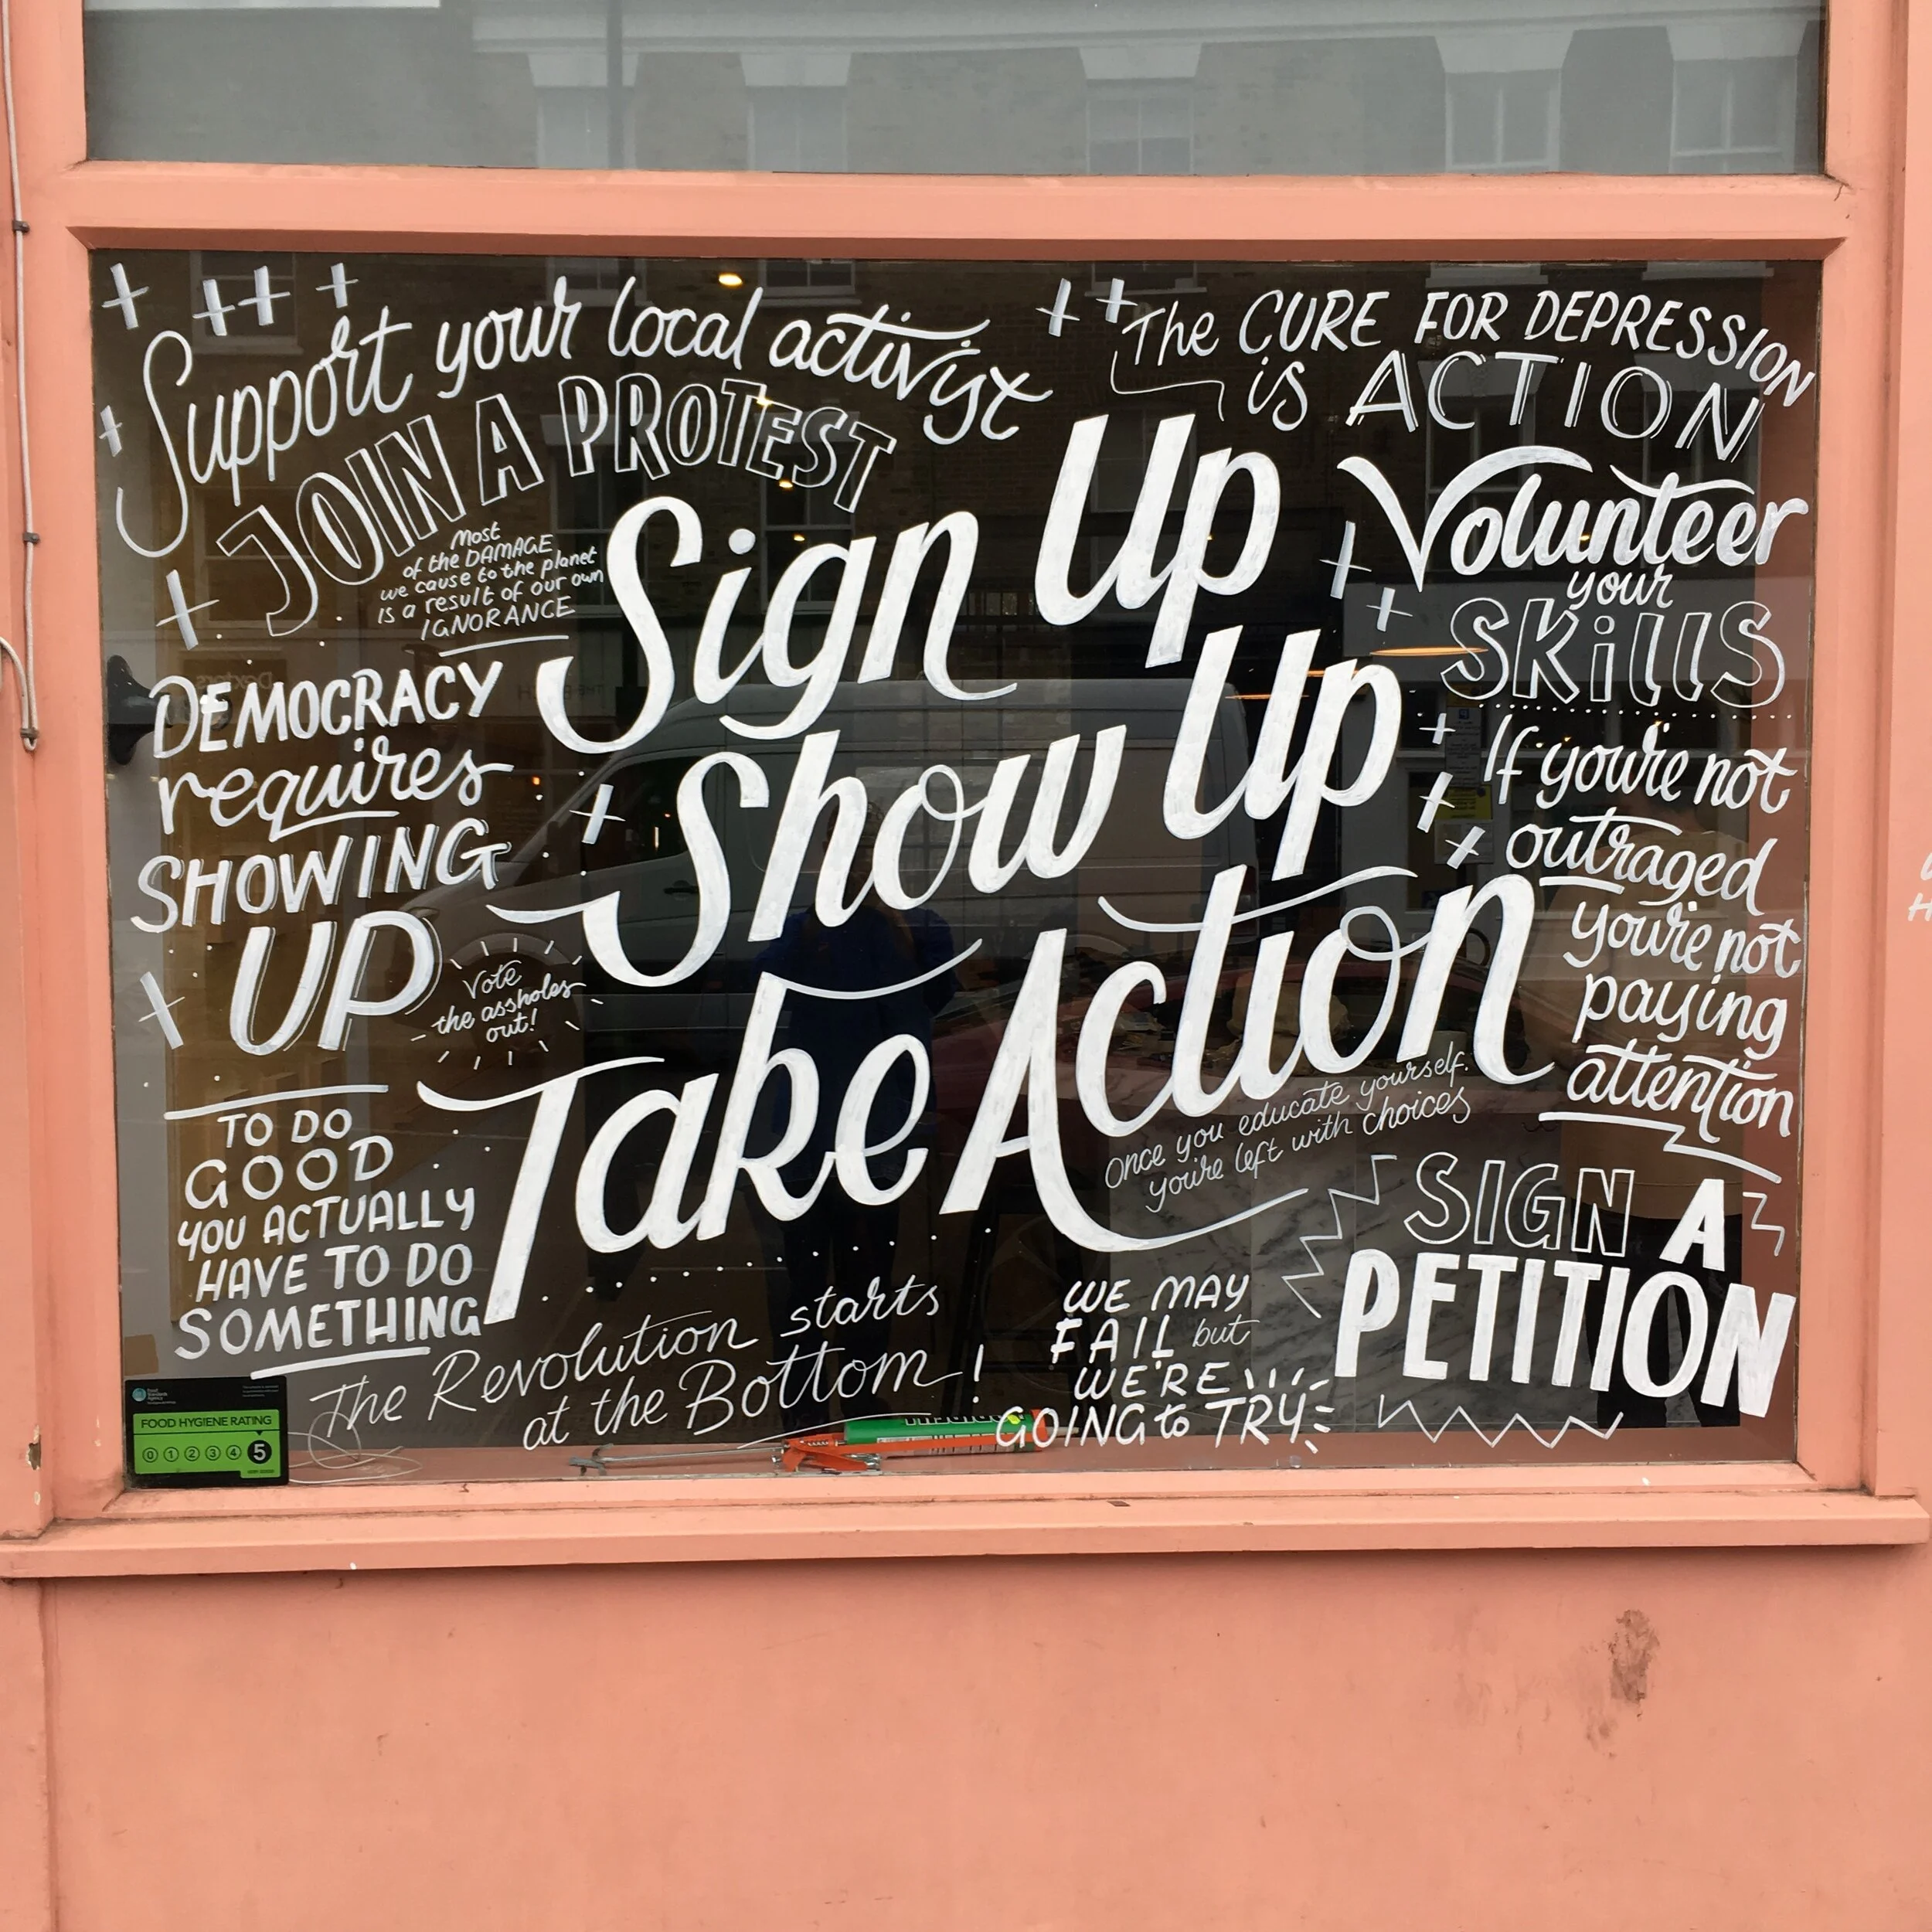 Support your local activist
JOIN A PROTEST
Most
of the DAMAGE
we cause to the planet
is a result of our own
IGNORANCE
The CURE FOR DEPRESSION
is ACTION
Sign Up
Show Up
Take Action
Volunteer
your
SKillS
DEMOCRACY
requires
SHOWING
UP
Vote
the assholes
out!
If you're not
outraged
you're not
paying
attention
TO DO
GOOD
YOU ACTUALLY
HAVE TO DO
SOMETHING
Once you educate yourself.
you're left with choices
SIGN A
PETITION
The Revolution starts
at the Bottom!
WE MAY
FAIL but
WE'RE
GOING to TRY
Food
Standards
Agency
FOOD HYGIENE RATING
0 1 2 3 4 5
VERY GOOD